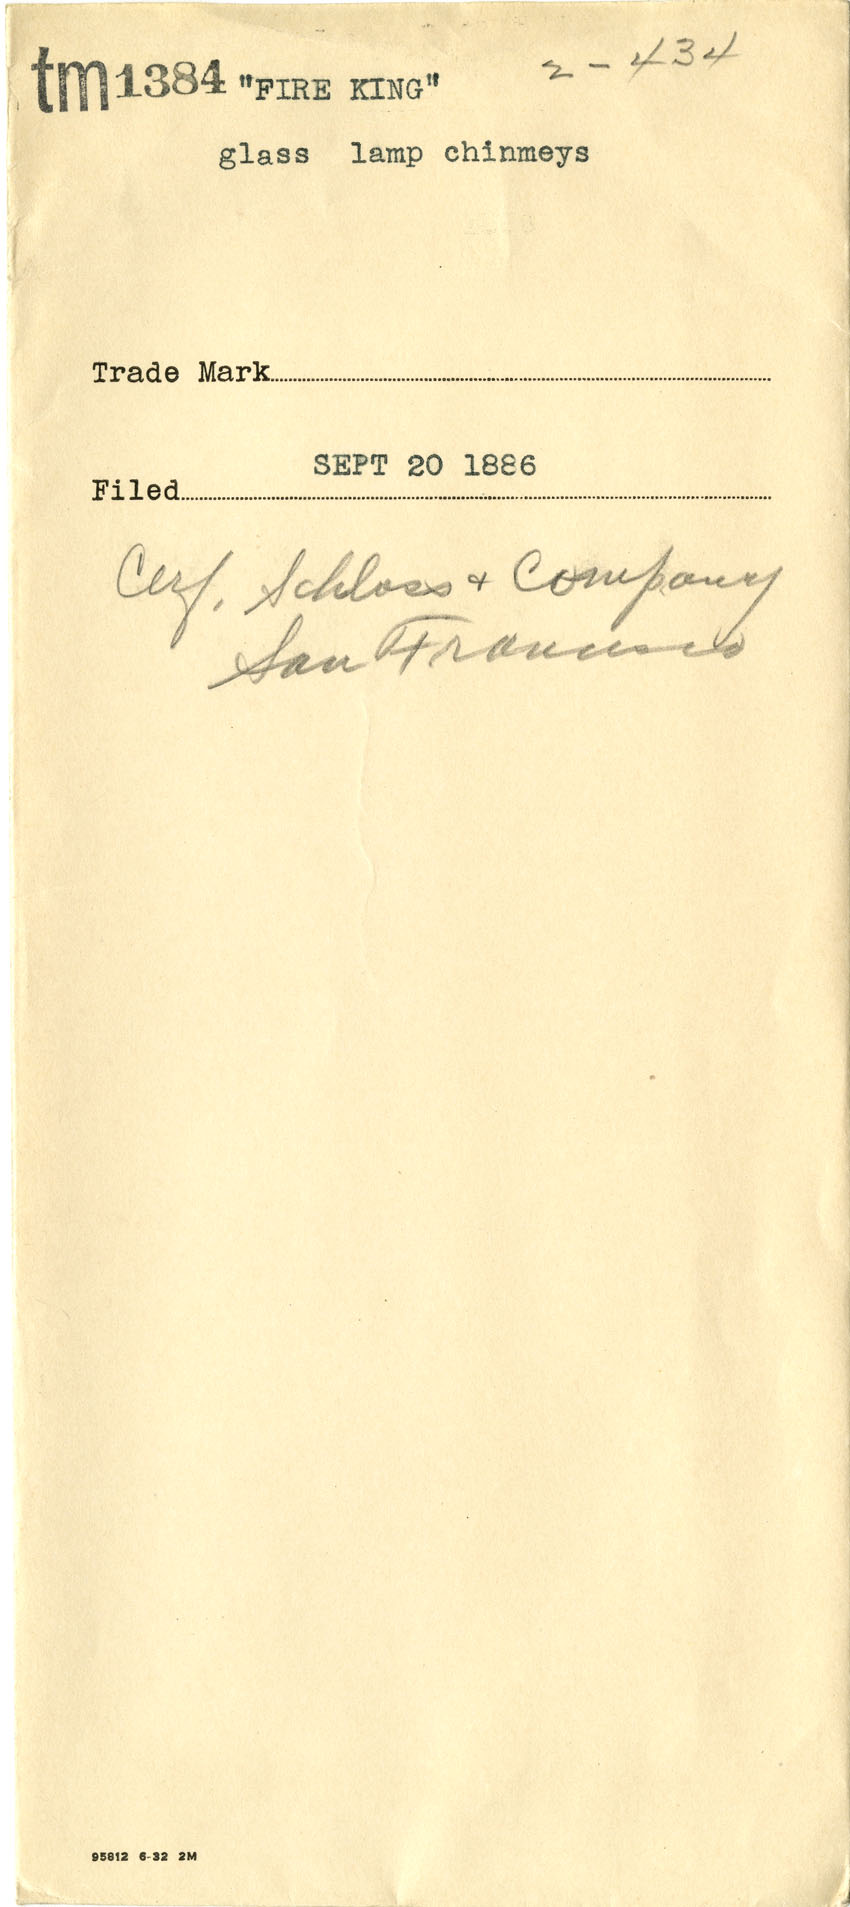 tm 1384 "FIRE KING" 2-434
glass lamp chinmeys
Trade Mark
SEPT 20 1886
Filed
Cerf, Schloss & Company
San Francisco
95812 6-32 2M